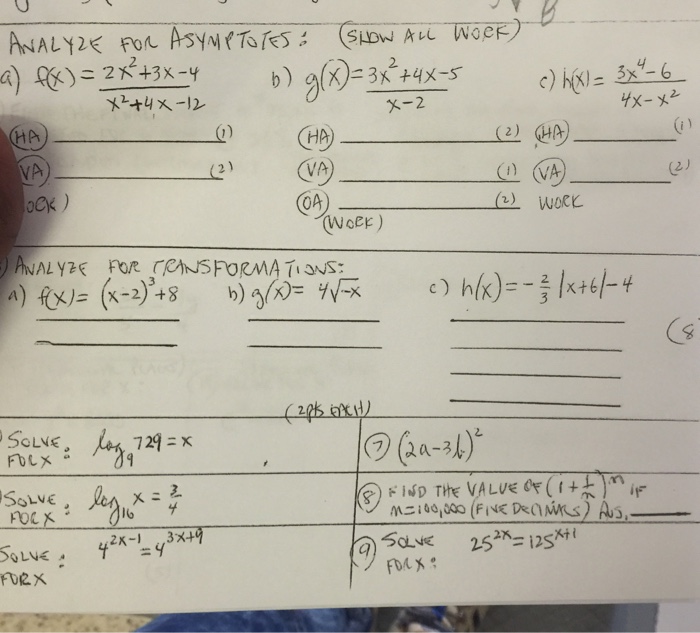 ANALYZE FOR ASYMPTOTES: (SHOW ALL WORK)
a) f(x) = 2x²+3x-4 / x²+4x-12 b) g(x) = 3x²+4x-5 / x-2 c) h(x) = 3x⁴-6 / 4x-x²
HA (1) HA (2) HA (1)
VA (2) VA (1) VA (2)
WORK) OA (2) WORK
(WORK)
) ANALYZE FOR TRANSFORMATIONS:
a) f(x) = (x-2)³+8 b) g(x) = 4√-x c) h(x) = -2/3 |x+6|-4
(8
(2pts EACH)
SOLVE FOR X: log₉ 729 = x
7 (2a-3b)²
SOLVE FOR X: log₁₆ x = 3/4
8 FIND THE VALUE OF (1+1/n)ⁿ IF
n=100,000 (FIVE DECIMALS) ANS.
SOLVE FOR X: 4²ˣ⁻¹ = 4³ˣ⁺⁹
9 SOLVE FOR X: 25²ˣ = 125ˣ⁺¹